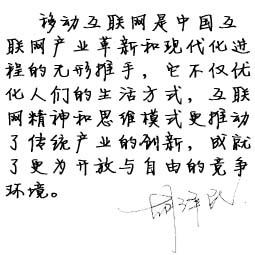 移动互联网是中国互
联网产业革新和现代化进
程的无形推手，它不仅优
化人们的生活方式，互联
网精神和思维模式更推动
了传统产业的创新，成就
了更为开放与自由的竞争
环境。